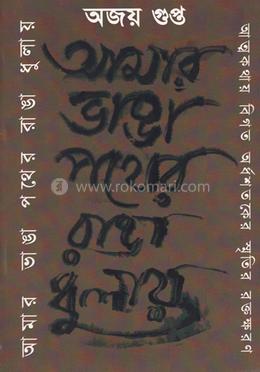 অজয় গুপ্ত
আমার
ভাঙা
পথের
রাঙা
ধুলায়
আমার ভাঙা পথের রাঙা ধুলায়
আত্মকথায় বিগত অর্ধশতকের স্মৃতির রক্তক্ষরণ
www.rokomari.com